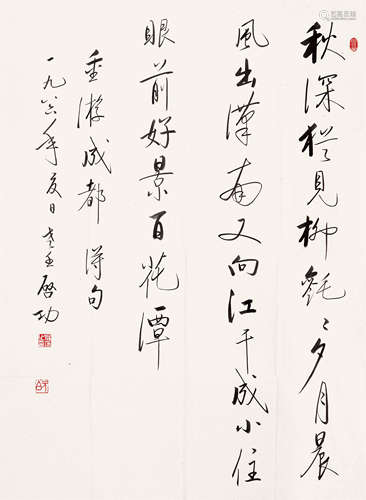 秋深猶見柳毿〻夕月晨
風出漢南又向江干成小住
眼前好景百花潭
重游成都 得句
一九八六年夏日 啓功